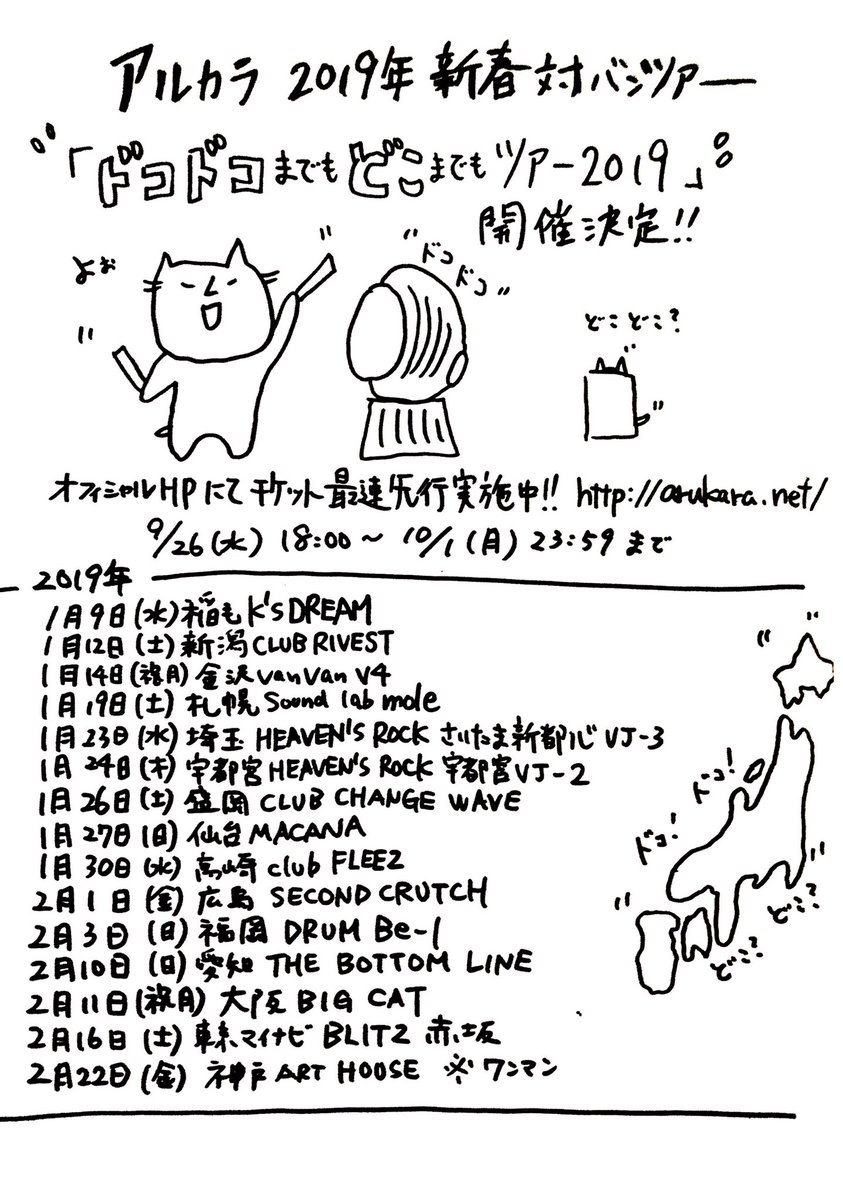 アルカラ 2019年 新春対バンツアー
「ドコドコまでもどこまでもツアー2019」
開催決定!!
よぉ
"ドコドコ"
どこどこ?
オフィシャルHPにてチケット最速先行実施中!! http://arukara.net/
9/26(水) 18:00〜10/1(月) 23:59まで
2019年
1月9日(水)稲毛K'S DREAM
1月12日(土)新潟CLUB RIVEST
1月14日(祝月)金沢vanvan V4
1月19日(土)札幌Sound lab mole
1月23日(水)埼玉 HEAVEN'S ROCK さいたま新都心 VJ-3
1月24日(木)宇都宮HEAVEN'S ROCK 宇都宮VJ-2
1月26日(土)盛岡 CLUB CHANGE WAVE
1月27日(日)仙台MACANA
1月30日(水)高崎 club FLEEZ
2月1日(金)広島 SECOND CRUTCH
2月3日(日)福岡 DRUM Be-1
2月10日(日)愛知 THE BOTTOM LINE
2月11日(祝月)大阪 BIG CAT
2月16日(土)東京マイナビ BLITZ 赤坂
2月22日(金)神戸 ART HOUSE ※ワンマン
ドコ!
ドコ!
どこ?
どこ?